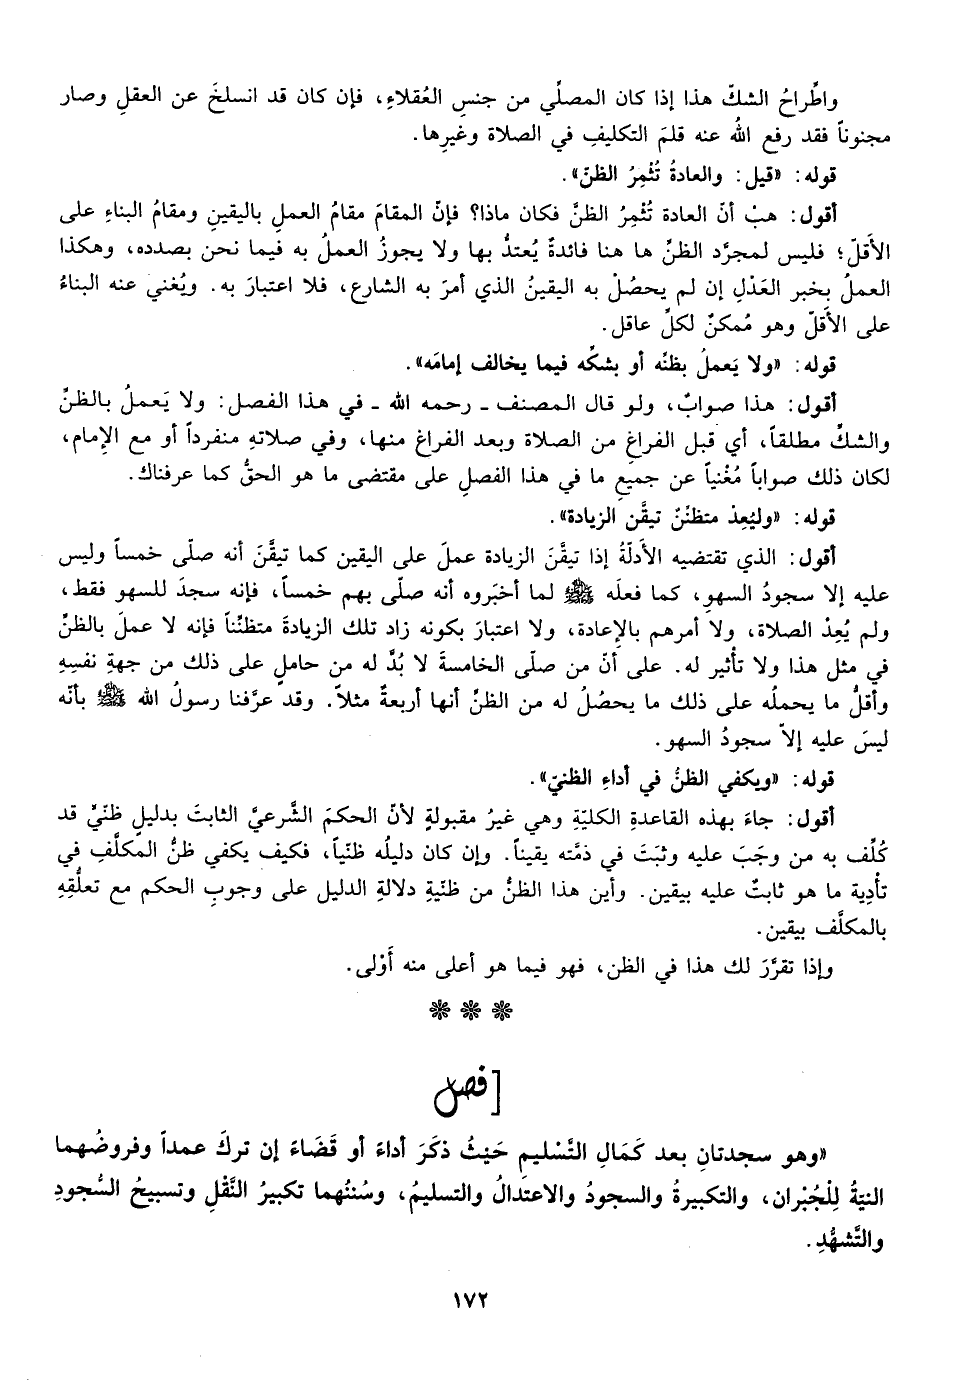 واطِّراحُ الشكّ هذا إذا كان المصلّي من جنسِ العُقلاءِ، فإن كان قد انسلخَ عن العقلِ وصار
مجنوناً فقد رفع اللهُ عنه قلمَ التكليفِ في الصلاة وغيرِها.
قوله: «قيل: والعادةُ تُثْمِرُ الظنّ».
أقول: هبْ أنّ العادة تُثْمِرُ الظنَّ فكان ماذا؟ فإنّ المقامَ مقامُ العملِ باليقينِ ومقامُ البناءِ على
الأقَلّ؛ فليس لمجرَّد الظنِّ ها هنا فائدةٌ يُعتدُّ بها ولا يجوزُ العملُ به فيما نحن بصدده، وهكذا
العملُ بخبر العَدْلِ إن لم يحصُلْ به اليقينُ الذي أمرَ به الشارع، فلا اعتبارَ به. ويُغني عنه البناءُ
على الأقَلّ وهو مُمكنٌ لكلِّ عاقل.
قوله: «ولا يَعملُ بظنِّه أو بشكِّه فيما يخالف إمامَه».
أقول: هذا صوابٌ، ولو قال المصنف ـ رحمه الله ـ في هذا الفصل: ولا يَعملُ بالظنِّ
والشكِّ مطلقاً، أي قبل الفراغِ من الصلاة وبعد الفراغِ منها، وفي صلاتهِ منفرداً أو مع الإمام،
لكان ذلك صواباً مُغْنياً عن جميعِ ما في هذا الفصلِ على مقتضى ما هو الحقُّ كما عرفناك.
قوله: «وليُعِدْ متظنِّنٌ تيقَّن الزيادة».
أقول: الذي تقتضيه الأدلّةُ إذا تيقَّنَ الزيادة عملَ على اليقين كما تيقَّنَ أنه صلّى خمساً وليس
عليه إلا سجودُ السهوِ، كما فعلَه ﷺ لما أخبَروه أنه صلّى بهم خمساً، فإنه سجدَ للسهو فقط،
ولم يُعِدْ الصلاة، ولا أمرهم بالإعادة، ولا اعتبارَ بكونه زاد تلك الزيادةَ متظنِّناً فإنه لا عملَ بالظنِّ
في مثل هذا ولا تأثير له. على أنّ من صلّى الخامسةَ لا بُدَّ له من حاملٍ على ذلك من جهةِ نفسِهِ
وأقلُّ ما يحملُه على ذلك ما يحصُلُ له من الظنِّ أنها أربعةٌ مثلاً. وقد عرَّفنا رسولُ الله ﷺ بأنّه
ليسَ عليه إلاّ سجودُ السهو.
قوله: «ويكفي الظنُّ في أداءِ الظنيّ».
أقول: جاءَ بهذه القاعدةِ الكليّةِ وهي غيرُ مقبولةٍ لأنّ الحكمَ الشرعيَّ الثابتَ بدليلٍ ظنّيٍّ قد
كُلِّف به من وجَبَ عليه وثبَتَ في ذمَّته يقيناً. وإن كان دليلُه ظنّياً، فكيف يكفي ظنُّ المكلَّفِ في
تأدِية ما هو ثابتٌ عليه بيقين. وأين هذا الظنُّ من ظنّيةِ دلالةِ الدليل على وجوبِ الحكم مع تعلُّقِهِ
بالمكلَّف بيقين.
وإذا تقرَّرَ لك هذا في الظن، فهو فيما هو أعلى منه أَوْلى.
❊ ❊ ❊
[فصل
«وهو سجدتانِ بعد كَمَالِ التَّسليمِ حَيْثُ ذكَرَ أداءً أو قَضَاءً إن تركَ عمداً وفروضُهما
النيّةُ لِلْجُبْران، والتكبيرةُ والسجودُ والاعتدالُ والتسليمُ، وسُننُهما تكبيرُ النَّقْلِ وتسبيحُ السُّجودِ
والتَّشهُّدِ.
١٧٢